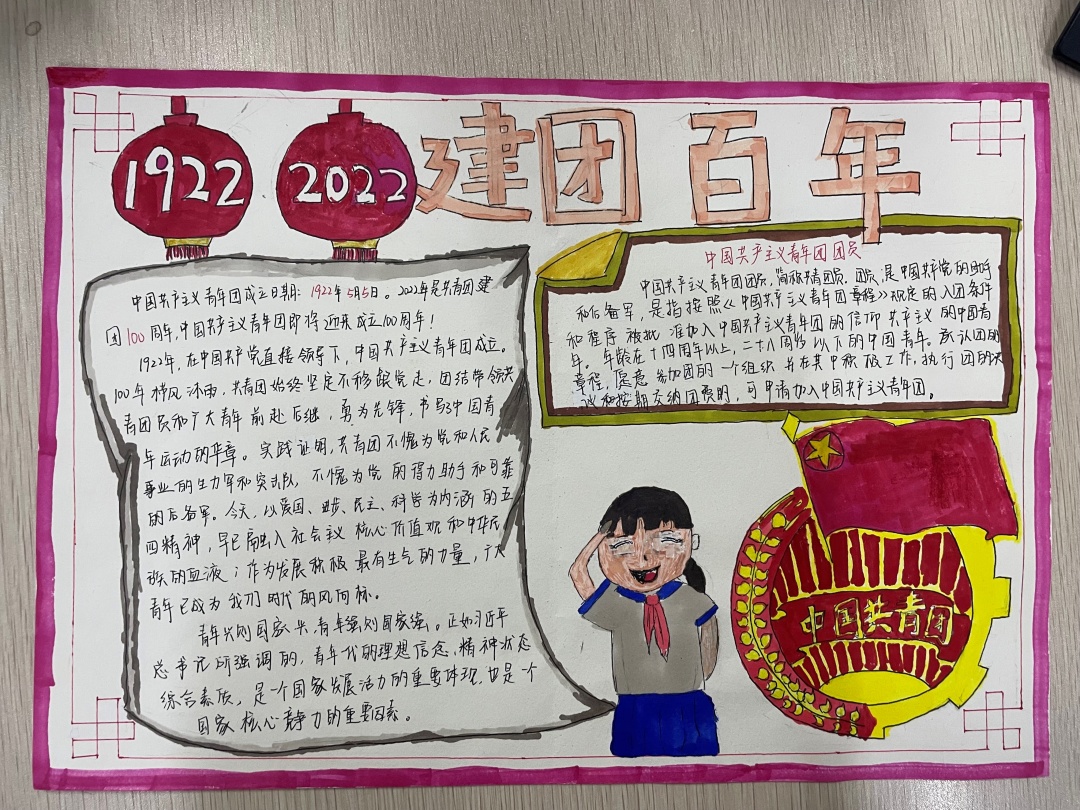 1922
2022
建团百年
中国共产主义青年团成立日期：1922年5月5日。2022年是共青团建
团100周年，中国共产主义青年团即将迎来成立100周年！
1922年，在中国共产党直接领导下，中国共产主义青年团成立。
100年栉风沐雨，共青团始终坚定不移跟党走，团结带领共
青团员和广大青年前赴后继，勇为先锋，书写中国青
年运动的华章。实践证明，共青团不愧为党和人民
事业的生力军和突击队，不愧为党的得力助手和可靠
的后备军。今天，以爱国、进步、民主、科学为内涵的五
四精神，早已融入社会主义核心价值观和中华民
族的血液；作为发展积极最有生气的力量，广大
青年已成为我们时代的风向标。
青年兴则国家兴，青年强则国家强。正如习近平
总书记所强调的，青年代的理想信念、精神状态
综合素质，是一个国家发展活力的重要体现，也是一个
国家核心静力的重要因素。
中国共产主义青年团团员
中国共产主义青年团团员，简称共青团员、团员，是中国共产党的助手
和后备军，是指按照《中国共产主义青年团章程》规定的入团条件
和程序被批准加入中国共产主义青年团的信仰共产主义的中国青
年。年龄在十四周年以上，二十八周岁以下的中国青年。承认团的
章程，愿意参加团的一个组织并在其中积极工作，执行团的决
议和按期交纳团费的，可申请加入中国共产主义青年团。
中国共青团